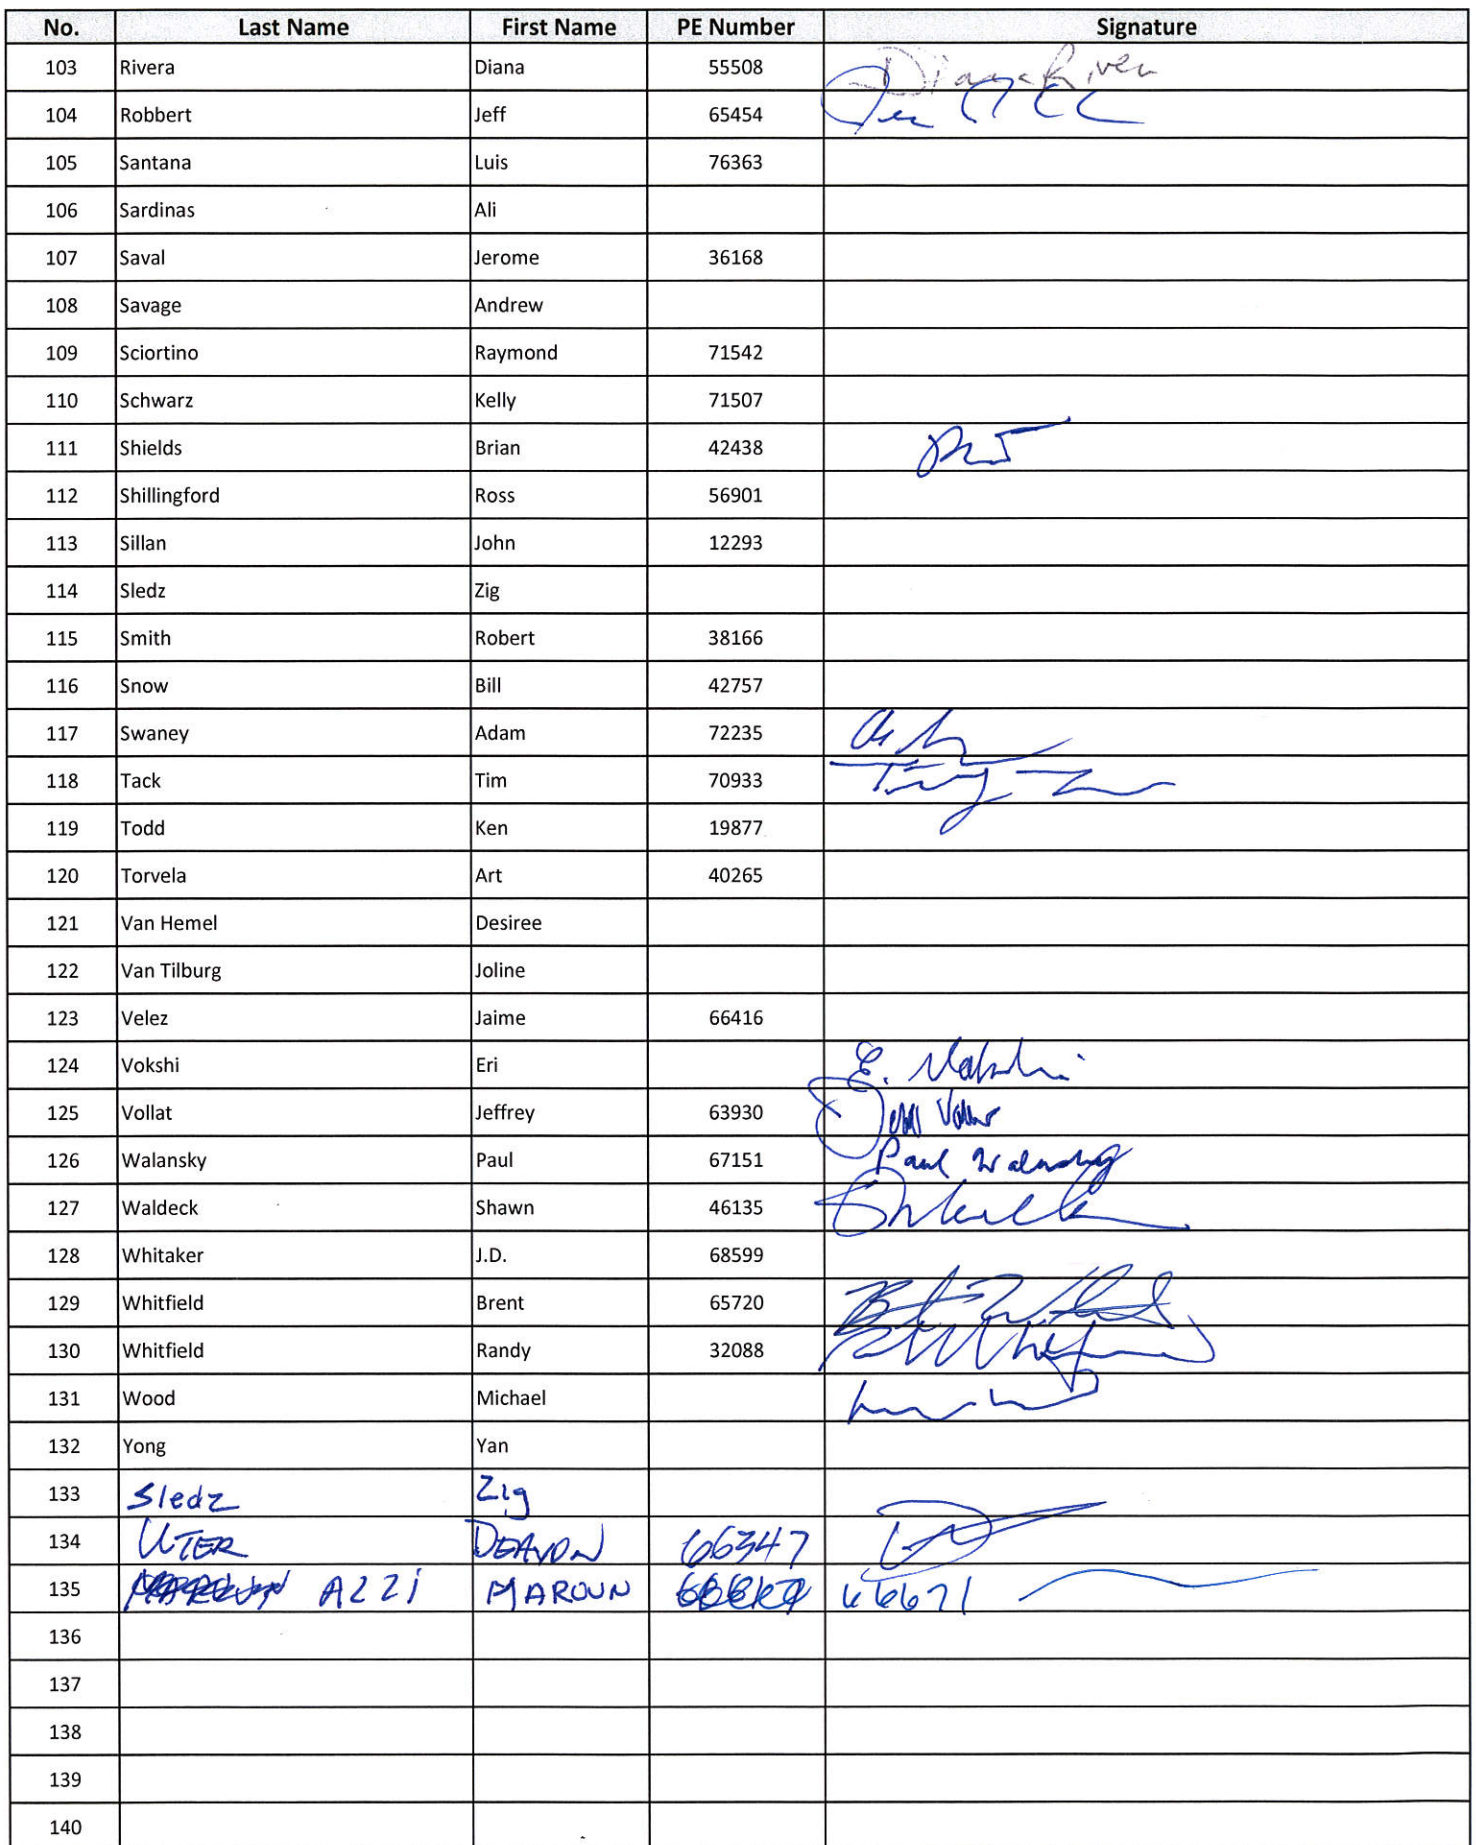 No. Last Name First Name PE Number Signature
103 Rivera Diana 55508 Diana Rivera
104 Robbert Jeff 65454
105 Santana Luis 76363
106 Sardinas Ali
107 Saval Jerome 36168
108 Savage Andrew
109 Sciortino Raymond 71542
110 Schwarz Kelly 71507
111 Shields Brian 42438
112 Shillingford Ross 56901
113 Sillan John 12293
114 Sledz Zig
115 Smith Robert 38166
116 Snow Bill 42757
117 Swaney Adam 72235
118 Tack Tim 70933
119 Todd Ken 19877
120 Torvela Art 40265
121 Van Hemel Desiree
122 Van Tilburg Joline
123 Velez Jaime 66416
124 Vokshi Eri E. Vokshi
125 Vollat Jeffrey 63930
126 Walansky Paul 67151 Paul Walansky
127 Waldeck Shawn 46135
128 Whitaker J.D. 68599
129 Whitfield Brent 65720
130 Whitfield Randy 32088
131 Wood Michael
132 Yong Yan
133 Sledz Zig
134 UTER DEAVON 66347
135 AZZI MAROUN 66671
136
137
138
139
140